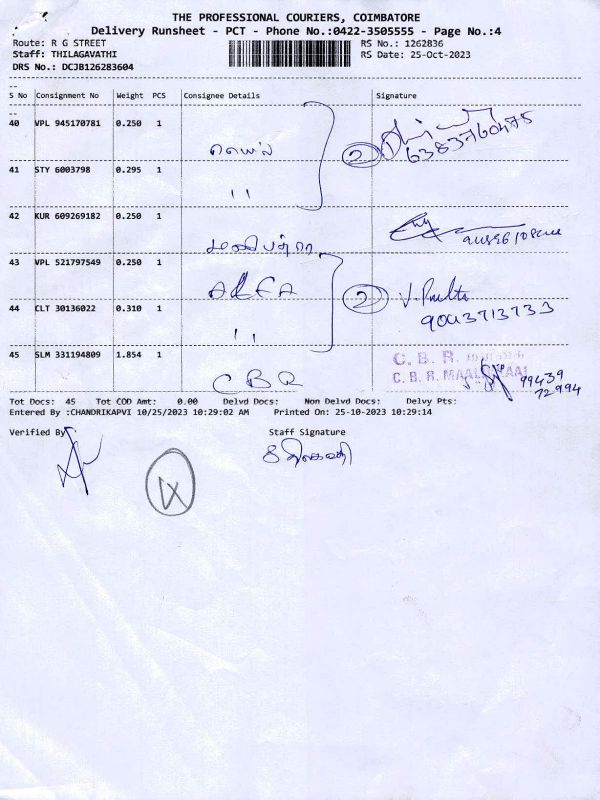 THE PROFESSIONAL COURIERS, COIMBATORE
Delivery Runsheet - PCT - Phone No.:0422-3505555 - Page No.:4
Route: R G STREET
RS No.: 1262836
Staff: THILAGAVATHI
RS Date: 25-Oct-2023
DRS No.: DCJB126283604
S No Consignment No Weight PCS Consignee Details Signature
40 VPL 945170781 0.250 1
2
6383760475
41 STY 6003798 0.295 1
"
42 KUR 609269182 0.250 1
43 VPL 521797549 0.250 1
ALFA
2
9043713733
44 CLT 30136022 0.310 1
"
45 SLM 331194809 1.854 1
CBR
C. B. R.
C. B. R.
99439
72994
Tot Docs: 45 Tot COD Amt: 0.00 Delvd Docs: Non Delvd Docs: Delvy Pts:
Entered By :CHANDRIKAPVI 10/25/2023 10:29:02 AM Printed On: 25-10-2023 10:29:14
Verified By
Staff Signature